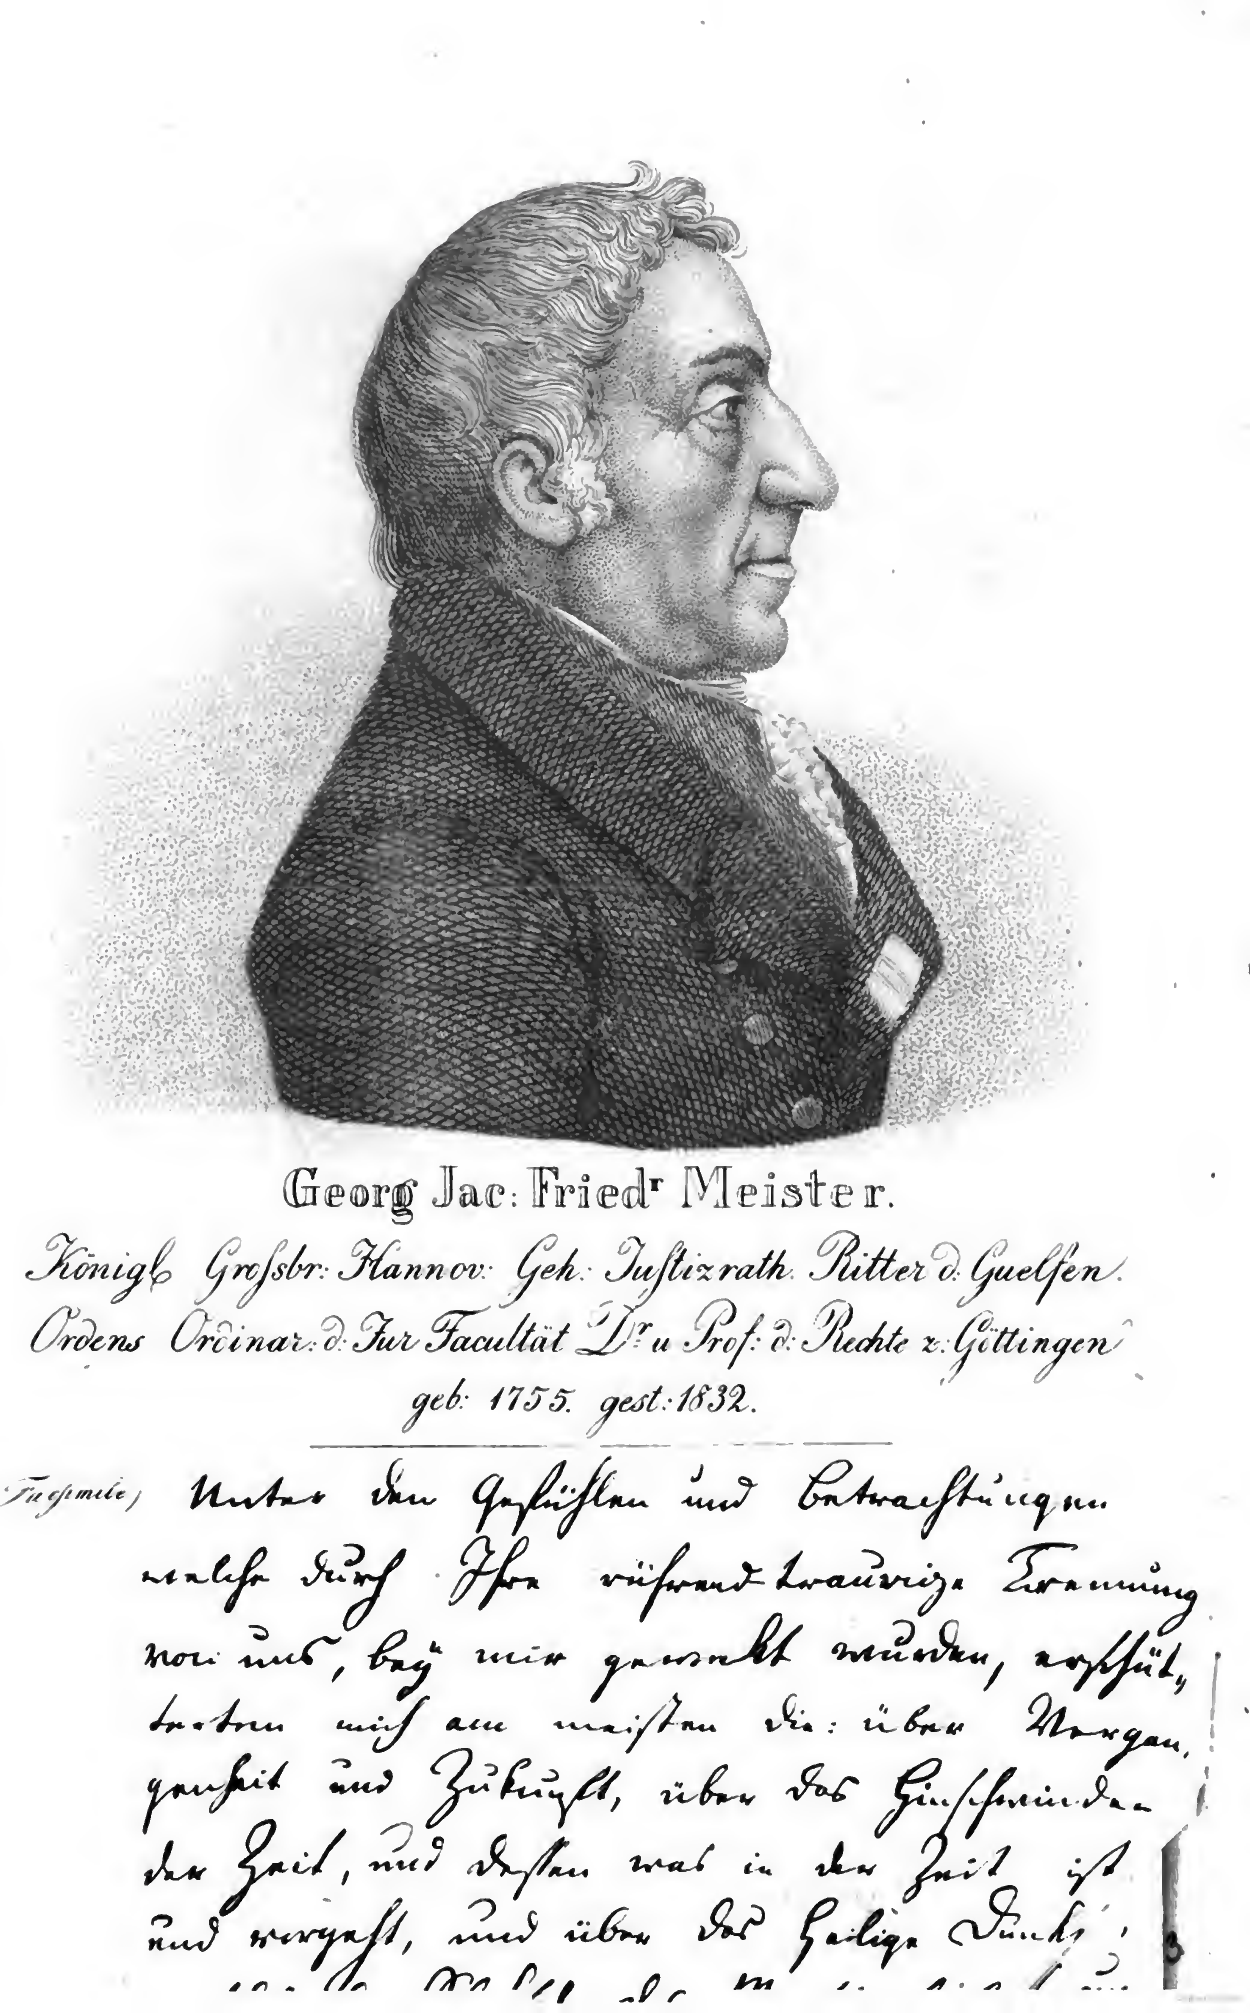 Georg Jac: Friedr Meister.
Königl Grossbr: Hannov: Geh: Justizrath. Ritter d: Guelfen.
Ordens Ordinar: d: Jur Facultät Dr. u Prof: d: Rechte z: Göttingen
geb: 1755. gest: 1832.
Facsimile, Unter den Gefühlen und Betrachtungen
welche durch Ihre rührend traurige Trennung
von uns, bey mir geweckt wurden, erschüt„
terten mich am meisten die: über Vergan„
genheit und Zukunft, über das Hinschwinden
der Zeit, und dessen was in der Zeit ist
und vergeht, und über das Heilige
3